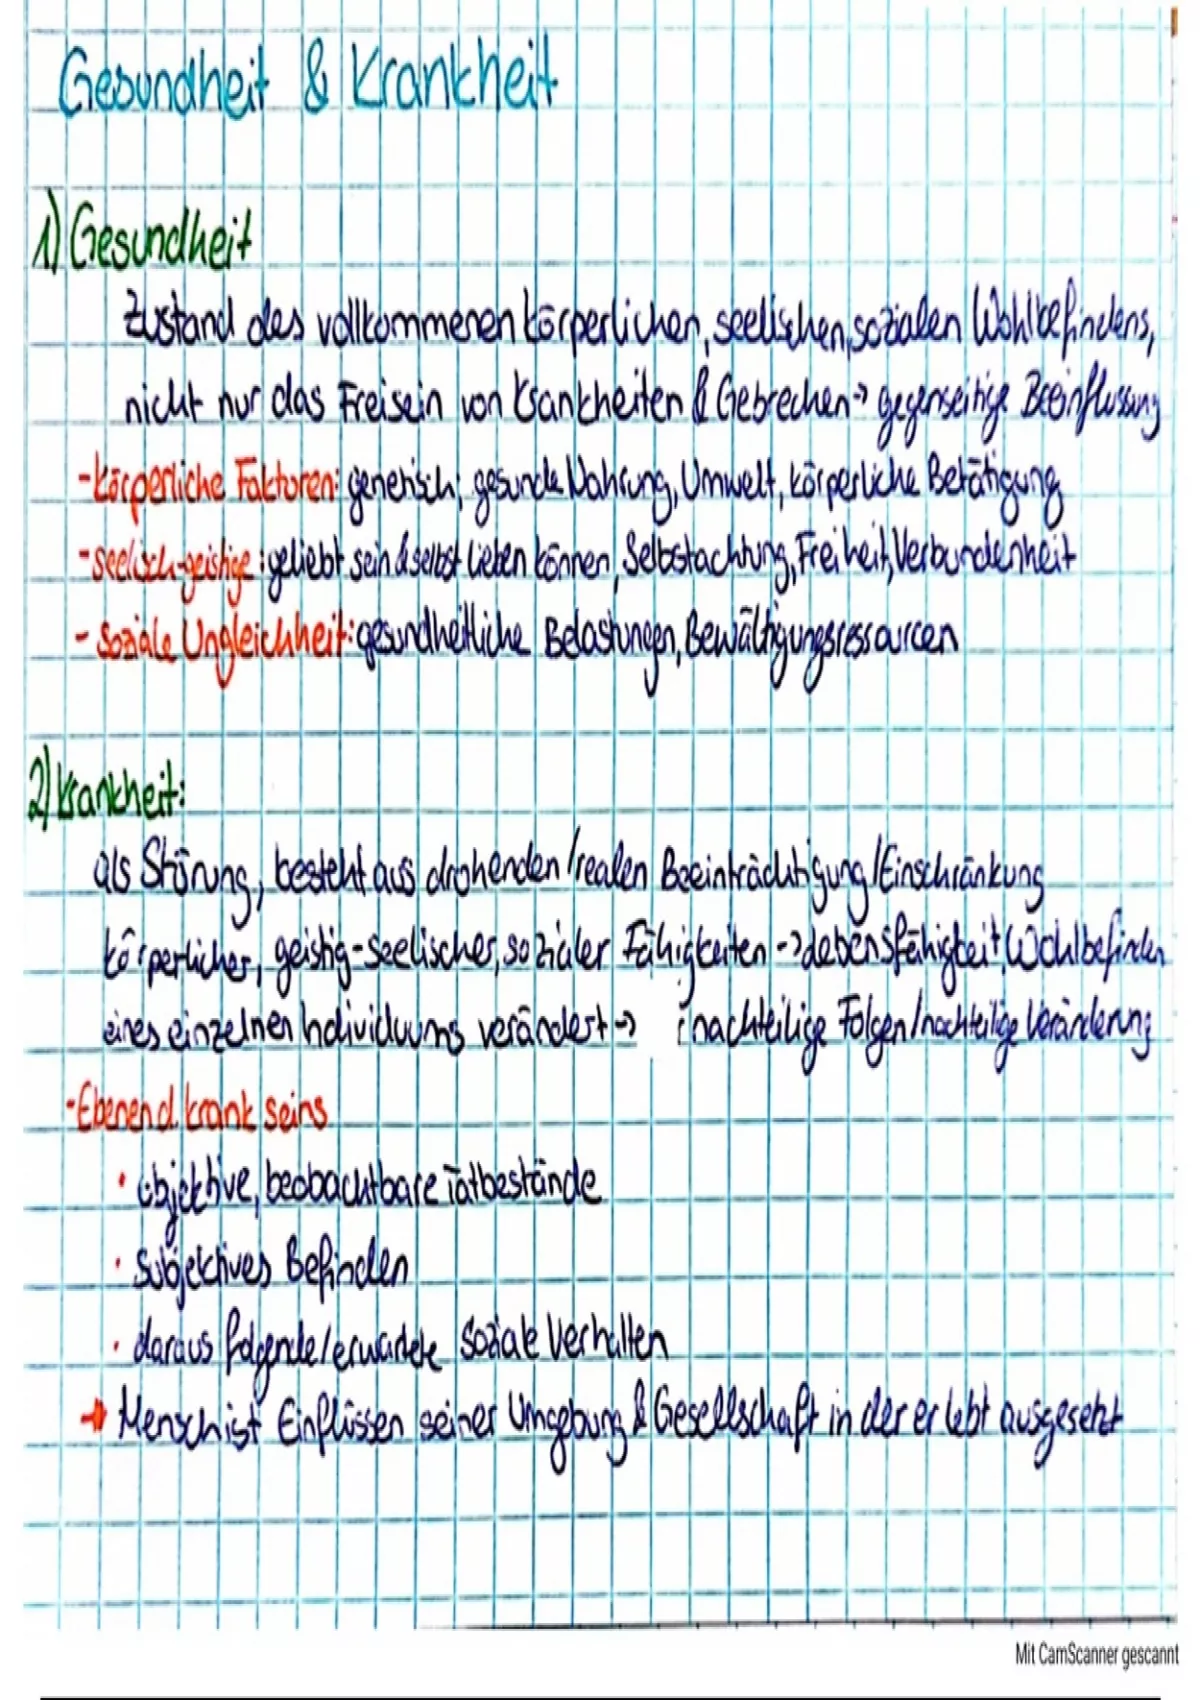 Gesundheit & Krankheit
1) Gesundheit
Zustand des vollkommenen körperlichen, seelischen, sozialen Wohlbefindens,
nicht nur das Freisein von Krankheiten & Gebrechen -> gegenseitige Beeinflussung
- körperliche Faktoren: genetisch; gesunde Nahrung, Umwelt, körperliche Betätigung
- seelisch-geistige: geliebt sein & selbst lieben können, Selbstachtung, Freiheit, Verbundenheit
- soziale Ungleichheit: gesundheitliche Belastungen, Bewältigungsressourcen
2) Krankheit:
als Störung, besteht aus drohenden/realen Beeinträchtigung/Einschränkung
körperlicher, geistig-seelischer, sozialer Fähigkeiten -> Lebensfähigkeit, Wohlbefinden
eines einzelnen Individuums verändert -> nachteilige Folgen/nachteilige Veränderung
- Ebenen d. krank seins
• objektive, beobachtbare Tatbestände
• subjektives Befinden
• daraus folgende/erwartete soziale Verhalten
→ Mensch ist Einflüssen seiner Umgebung & Gesellschaft in der er lebt ausgesetzt
Mit CamScanner gescannt